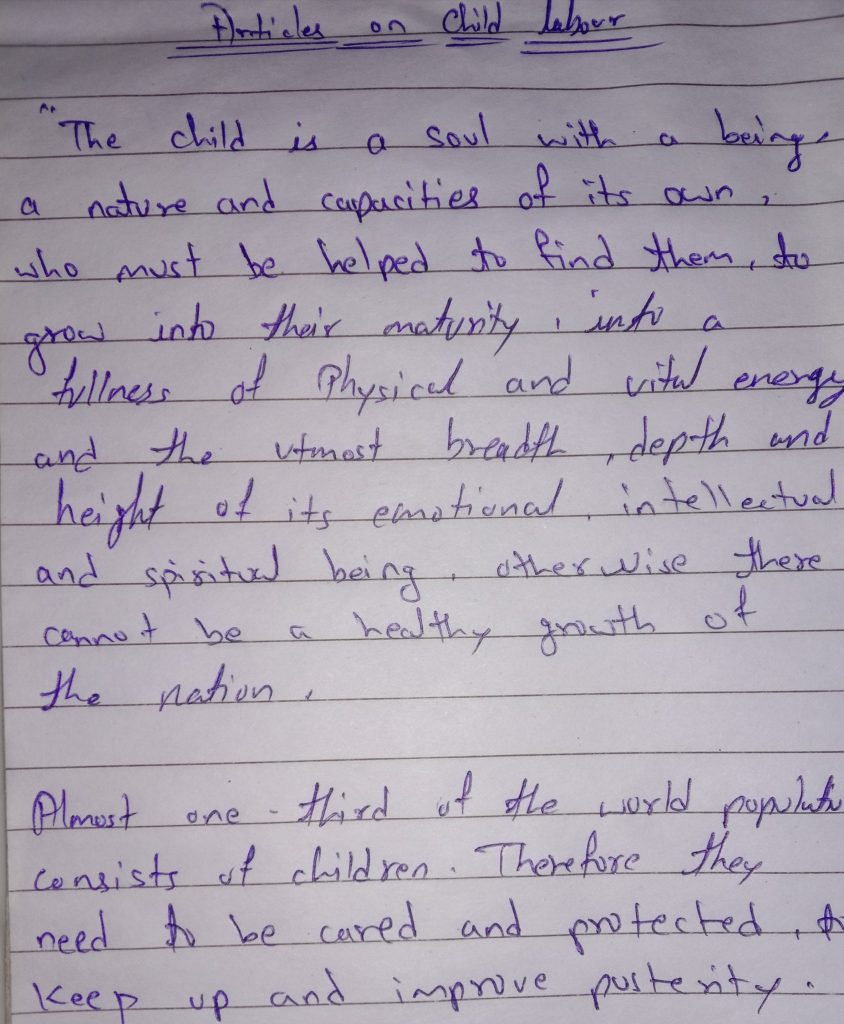 Articles on Child labour
"The child is a soul with a being,
a nature and capacities of its own,
who must be helped to find them, to
grow into their maturity, into a
fullness of Physical and vital energy
and the utmost breadth, depth and
height of its emotional, intellectual
and spiritual being, otherwise there
cannot be a healthy growth of
the nation.
Almost one-third of the world
consists of children. Therefore they
need to be cared and protected, to
Keep up and improve posterity.